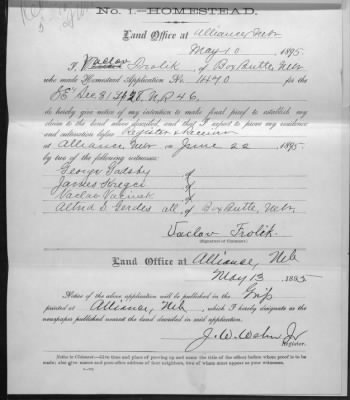 No. 1.—HOMESTEAD.
Land Office at Alliance Nebr
May 10 1895.
I, Vaclav Frolik, of Box Butte, Nebr
who made Homestead Application No. 1470 for the
Sec 31
do hereby give notice of my intention to make final proof to establish my
claim to the land above described, and that I expect to prove my residence
and cultivation before Register & Receiver
at Alliance Nebr on June 22 1895
by two of the following witnesses:
George Sadsby of
James of
Vaclav of
Albrd D Gerdes all of Box Butte, Nebr.
Vaclav Frolik.
(Signature of Claimant.)
Land Office at Alliance, Neb
May 13, 1895
Notice of the above application will be published in the Grip
printed at Alliance, Neb, which I hereby designate as the
newspaper published nearest the land described in said application.
J. W. Wehn Jr
Register.
Notice to Claimant.—Give time and place of proving up and name the title of the officer before whom proof is to be
made; also give names and post-office address of four neighbors, two of whom must appear as your witnesses.